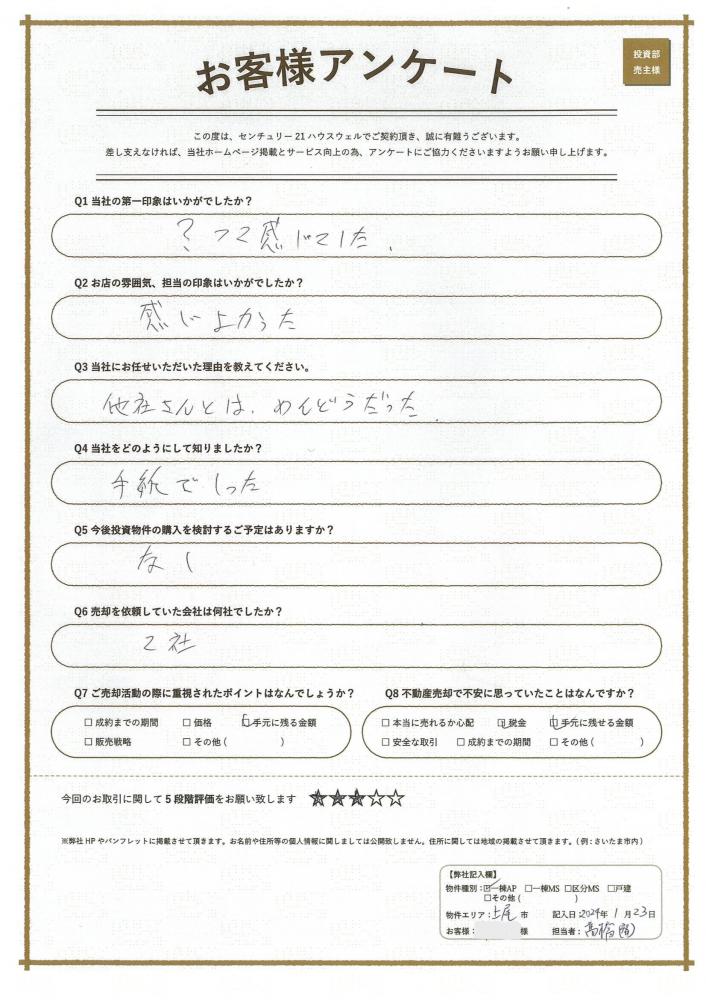 お客様アンケート
投資部
売主様
この度は、センチュリー21ハウスウェルでご契約頂き、誠に有難うございます。
差し支えなければ、当社ホームページ掲載とサービス向上の為、アンケートにご協力くださいますようお願い申し上げます。
Q1 当社の第一印象はいかがでしたか?
?って感じでした.
Q2 お店の雰囲気、担当の印象はいかがでしたか?
感じよかった
Q3 当社にお任せいただいた理由を教えてください。
他社さんとは、めんどうだった.
Q4 当社をどのようにして知りましたか?
手紙でしった
Q5 今後投資物件の購入を検討するご予定はありますか?
なし
Q6 売却を依頼していた会社は何社でしたか?
2社
Q7 ご売却活動の際に重視されたポイントはなんでしょうか?
□ 成約までの期間 □ 価格 □ 手元に残る金額
□ 販売戦略 □ その他 ( )
Q8 不動産売却で不安に思っていたことはなんですか?
□ 本当に売れるか心配 □ 税金 □ 手元に残せる金額
□ 安全な取引 □ 成約までの期間 □ その他 ( )
今回のお取引に関して 5 段階評価をお願い致します ★★★☆☆
※弊社 HP やパンフレットに掲載させて頂きます。お名前や住所等の個人情報に関しましては公開致しません。住所に関しては地域の掲載させて頂きます。( 例 : さいたま市内 )
【弊社記入欄】
物件種別 : ☑一棟AP □一棟MS □区分MS □戸建
□その他 ( )
物件エリア : 上尾 市 記入日 : 2024年 1 月 23 日
お客様 : 様 担当者 : 高橋